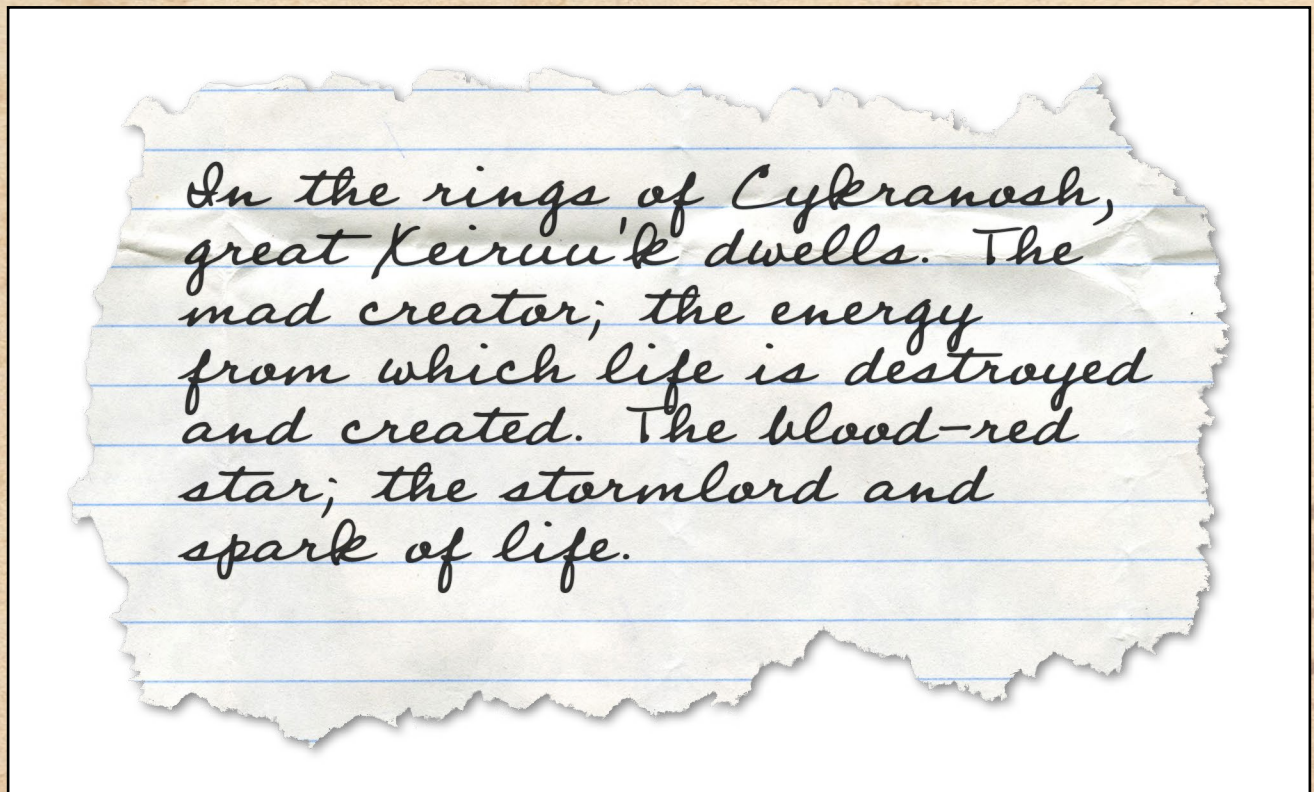 In the rings of Cykranosh,
great Xeiruu'k dwells. The
mad creator; the energy
from which life is destroyed
and created. The blood-red
star; the stormlord and
spark of life.